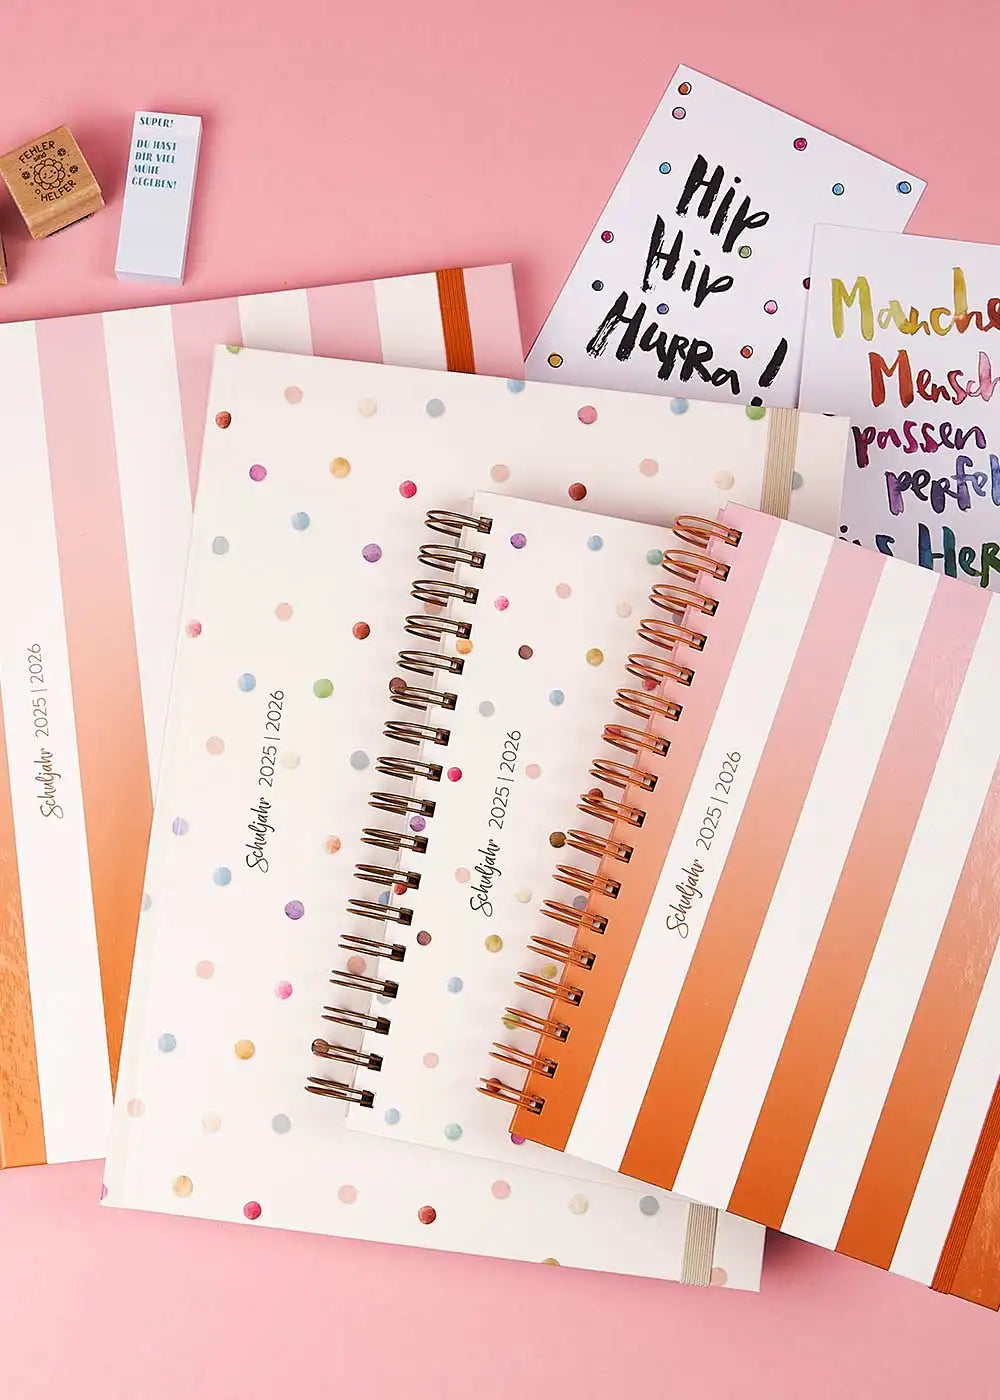 FEHLER
sind
HELFER
SUPER!
DU HAST
DIR VIEL
MÜHE
GEGEBEN!
Hip
Hip
Hurra!
Manche
Mensch
passen
perfe
ins Her
Schuljahr 2025 | 2026
Schuljahr 2025 | 2026
Schuljahr 2025 | 2026
Schuljahr 2025 | 2026